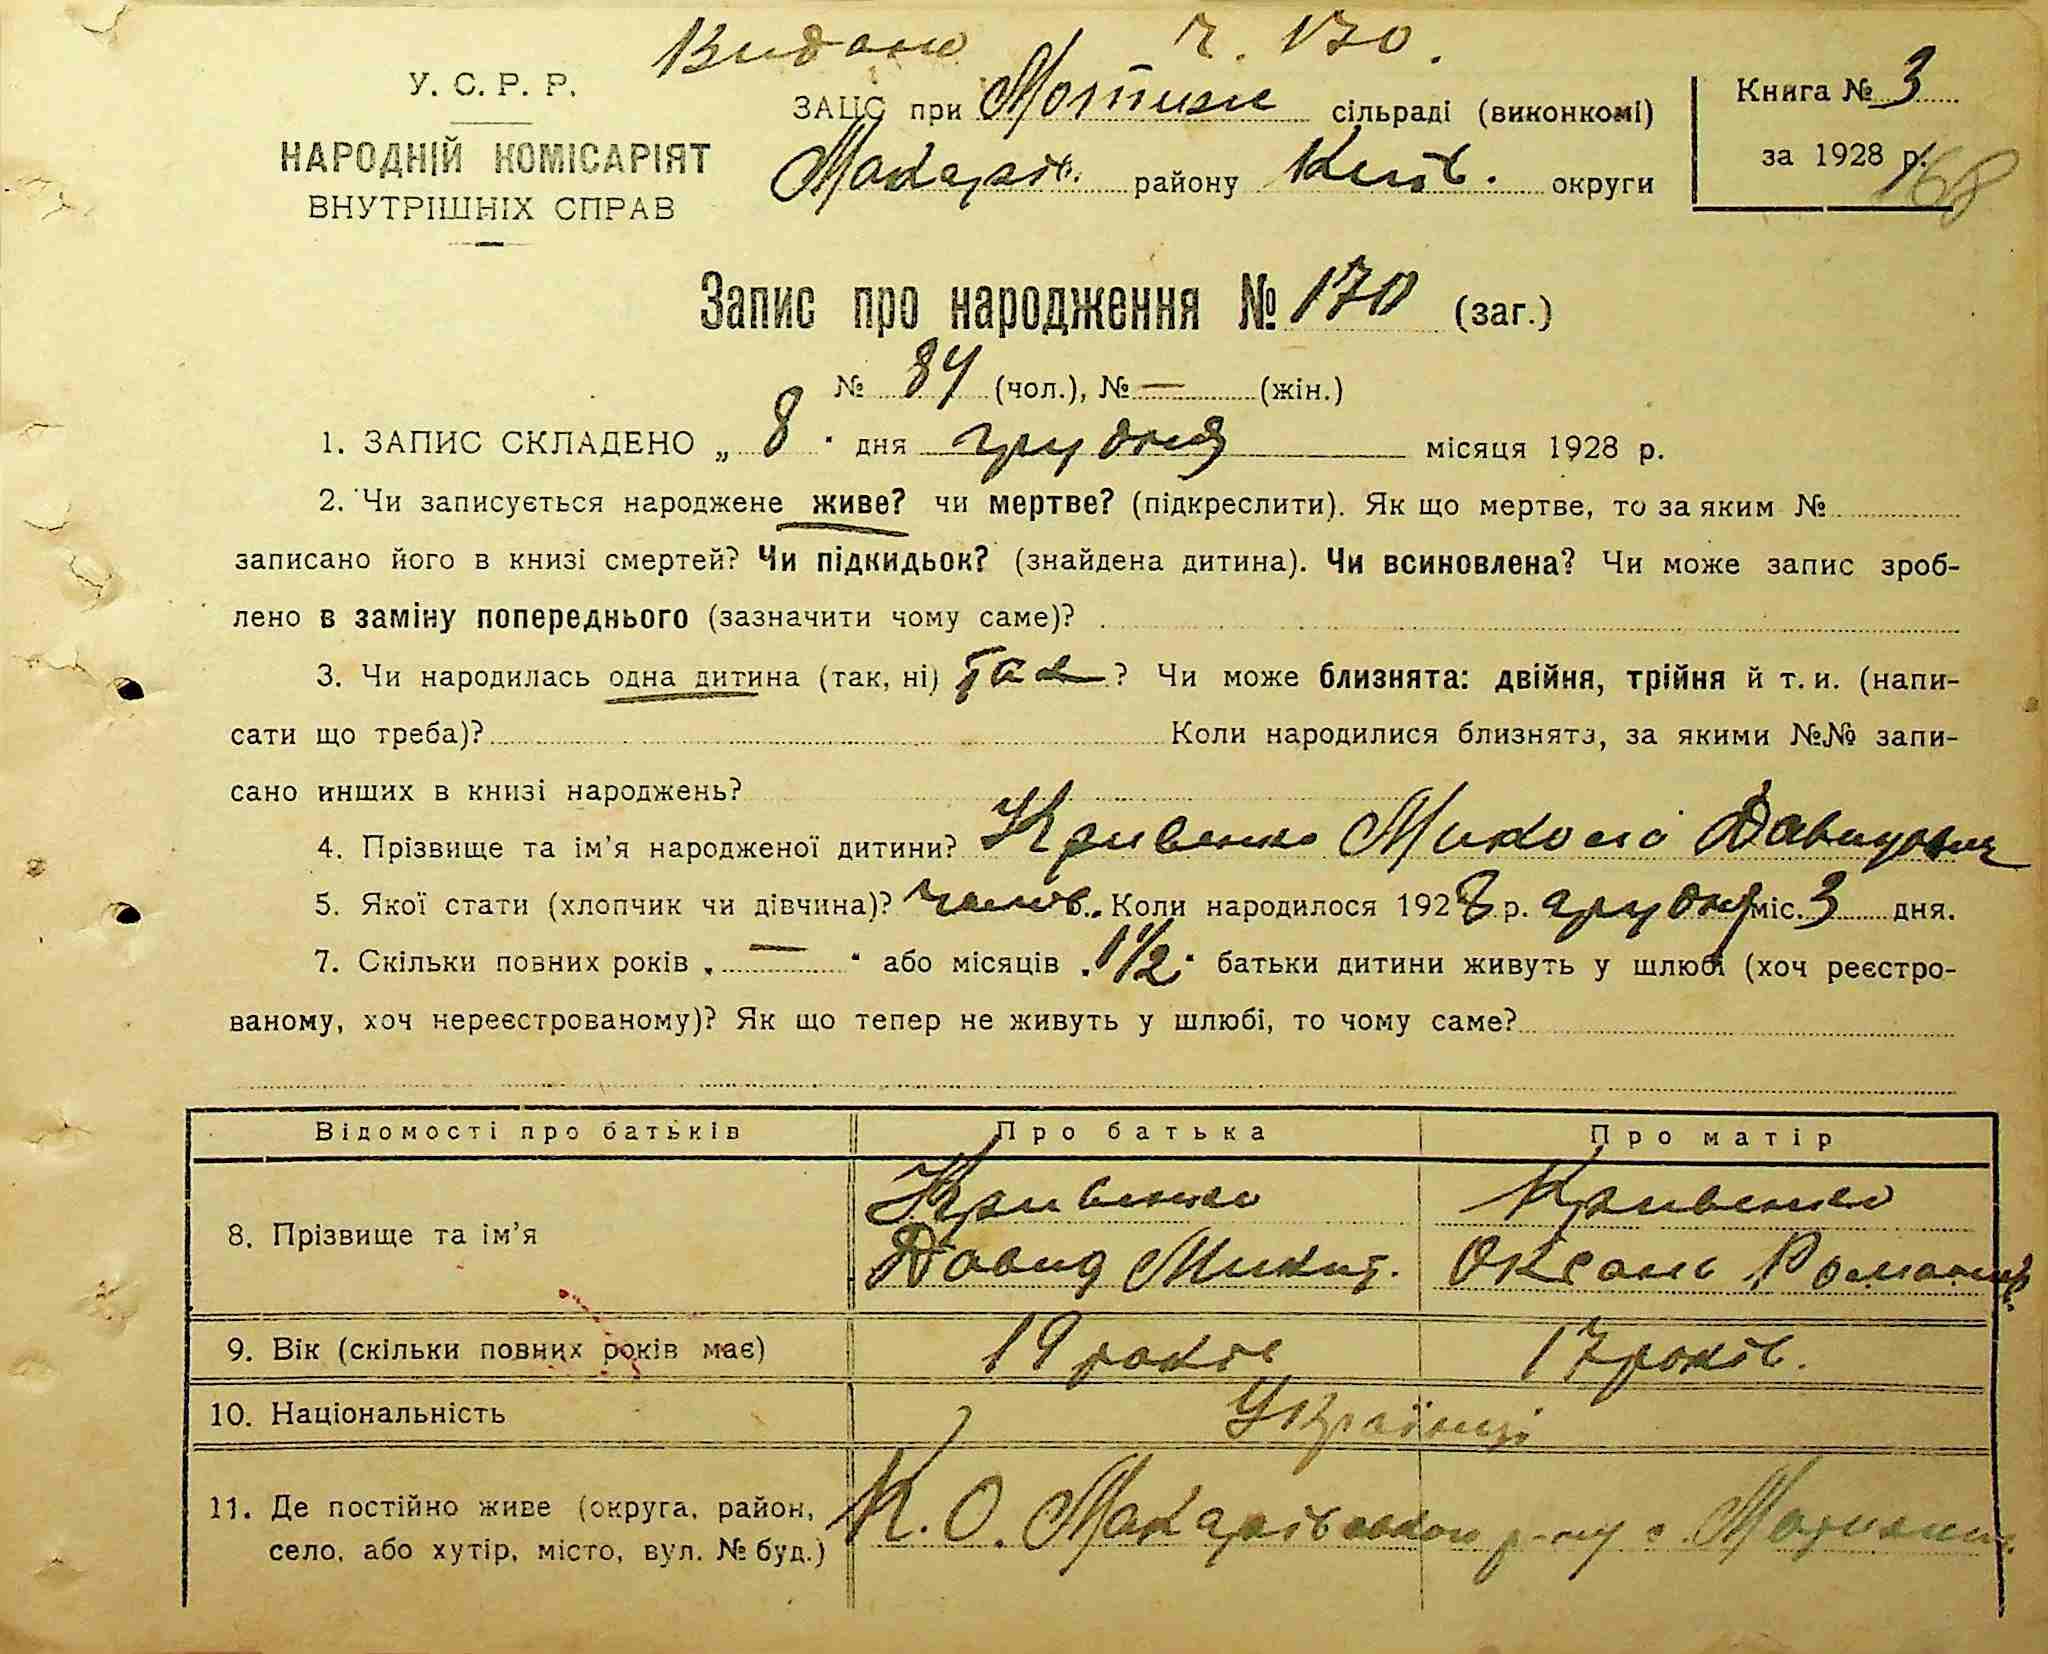 Видано ч. 170.
У. С. Р. Р.
НАРОДНІЙ КОМІСАРІЯТ
ВНУТРІШНІХ СПРАВ
ЗАЦС при Мотиж сільраді (виконкомі)
Макарів. району Київ. округи
Книга № 3
за 1928 р.
168
Запис про народження № 170 (заг.)
№ 84 (чол.), № — (жін.)
1. ЗАПИС СКЛАДЕНО „ 8 " дня грудня місяця 1928 р.
2. Чи записується народжене живе? чи мертве? (підкреслити). Як що мертве, то за яким №
записано його в книзі смертей? Чи підкидьок? (знайдена дитина). Чи всиновлена? Чи може запис зроб-
лено в заміну попереднього (зазначити чому саме)?
3. Чи народилась одна дитина (так, ні) так ? Чи може близнята: двійня, трійня й т. и. (напи-
сати що треба)? Коли народилися близнята, за якими №№ запи-
сано инших в книзі народжень?
4. Прізвище та ім'я народженої дитини? Кривенко Микола Давидович
5. Якої стати (хлопчик чи дівчина)? чолов. Коли народилося 1928 р. грудня міс. 3 дня.
7. Скільки повних років „ — " або місяців „ 1½ " батьки дитини живуть у шлюбі (хоч реєстро-
ваному, хоч нереєстрованому)? Як що тепер не живуть у шлюбі, то чому саме?
Відомості про батьків Про батька Про матір
8. Прізвище та ім'я
Кривенко Кривенко
Давид Микит. Оксана
9. Вік (скільки повних років має) 19 років 17 років.
10. Національність Українці
11. Де постійно живе (округа, район,
село, або хутір, місто, вул. № буд.)
К. О. Макарівського р-ну с.